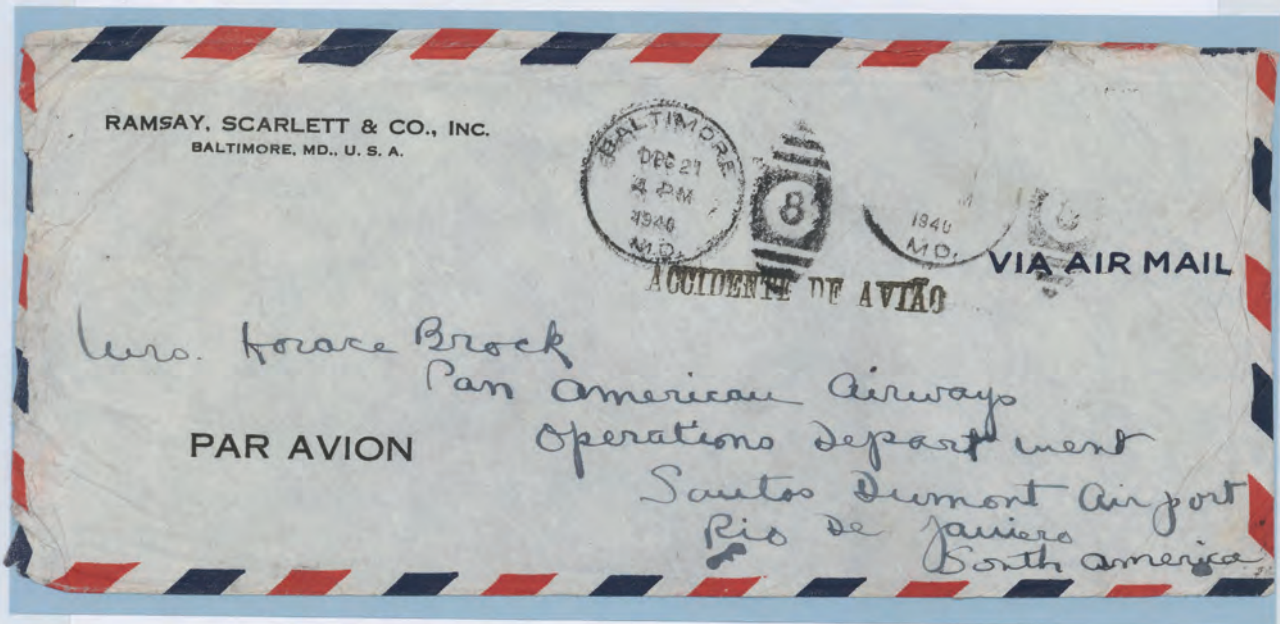 RAMSAY, SCARLETT & CO., INC.
BALTIMORE, MD., U. S. A.
BALTIMORE
DEC 27
4 PM
1940
MD.
8
1940
MD.
VIA AIR MAIL
ACCIDENTE DE AVIÃO
Mrs. Horace Brock
Pan American Airways
PAR AVION
Operations Department
Santos Dumont Airport
Rio De Janiero
South America